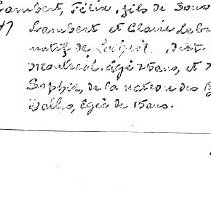 Lambert, Félix, fils de Louis
Lambert et Claire Lebr
natif de district
Montréal, âgé 25 ans, et
Sophie, de la nation des
dalles, âgée de 15 ans.